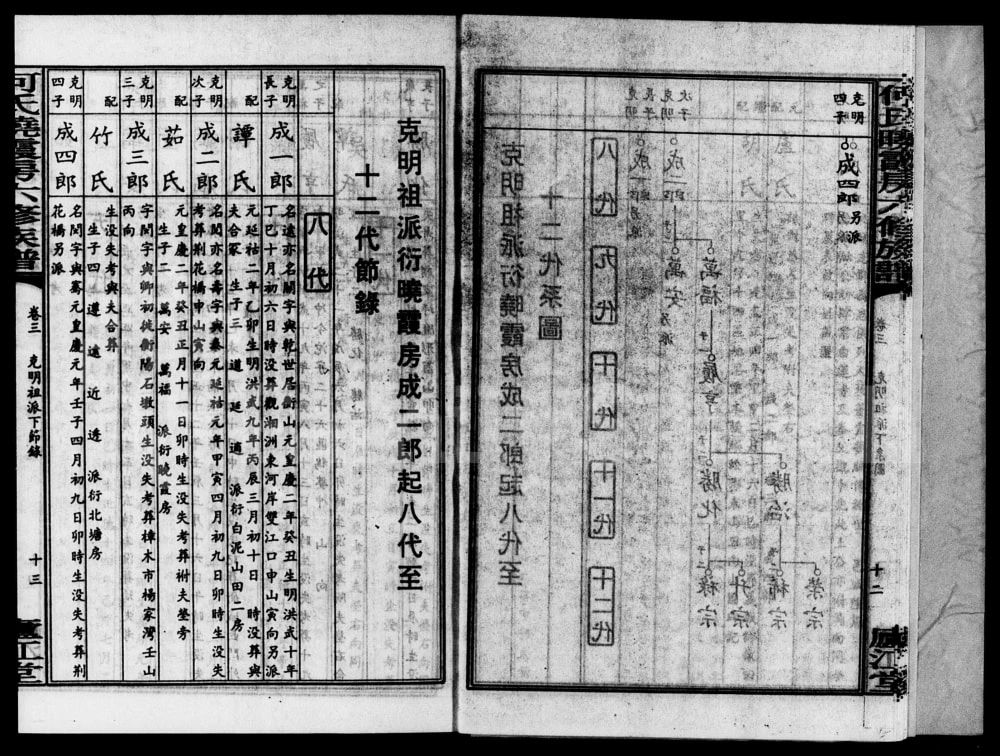 何氏曉霞房六修族譜
卷三 克明祖派下系圖
十二
廬江堂
克明祖派衍曉霞房成二郎起八代至
十二代系圖
八代 九代 十代 十一代 十二代
克明長子 成一郎 另派
克明次子 成二郎
萬安 另派
萬福
履亨
勝化
祿宗
升宗
勝治
柿宗
榮宗
克明四子 成四郎 另派
克明祖派衍曉霞房成二郎起八代至
十二代節錄
八代
克明長子 成一郎 名遠亦名關字興乾世居衡山元皇慶二年癸丑生明洪武十年
丁巳十月初六日時沒葬觀湘洲東河岸雙江口中山寅向另派
配 譚氏 元延祐二年乙卯生明洪武九年丙辰三月初十日 時沒葬與
夫合冢 生子三 道 廷 通 派衍白泥山田二房
克明次子 成二郎 名閏亦名壽字興泰元延祐元年甲寅四月初九日卯時生沒失
考葬荆花橋申山寅向
配 茹氏 元皇慶二年癸丑正月十一日卯時生沒失考葬祔夫塋旁
生子二 萬安 萬福 派衍曉霞房
克明三子 成三郎 字問字興卿初徙衡陽石墩頭生沒失考葬樟木市楊家灣壬山
丙向
配 竹氏 生沒失考與夫合葬
生子四 遵 遠 近 透 派衍北塘房
克明四子 成四郎 名閤字興騫元皇慶元年壬子四月初九日卯時生沒失考葬荆
花橋另派
何氏曉霞房六修族譜
卷三 克明祖派下節錄
十三
廬江堂